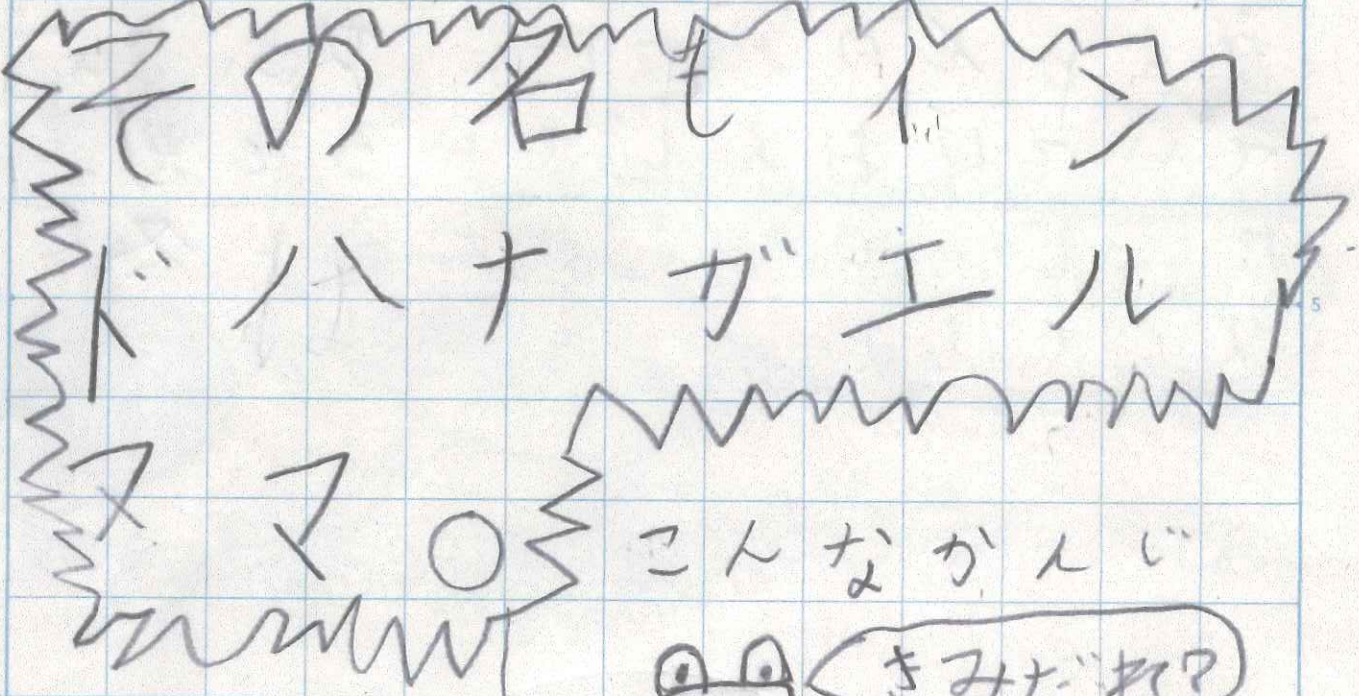 その名もイン
ドハナガエル
ヌマ。
こんなかんじ
きみだれ?